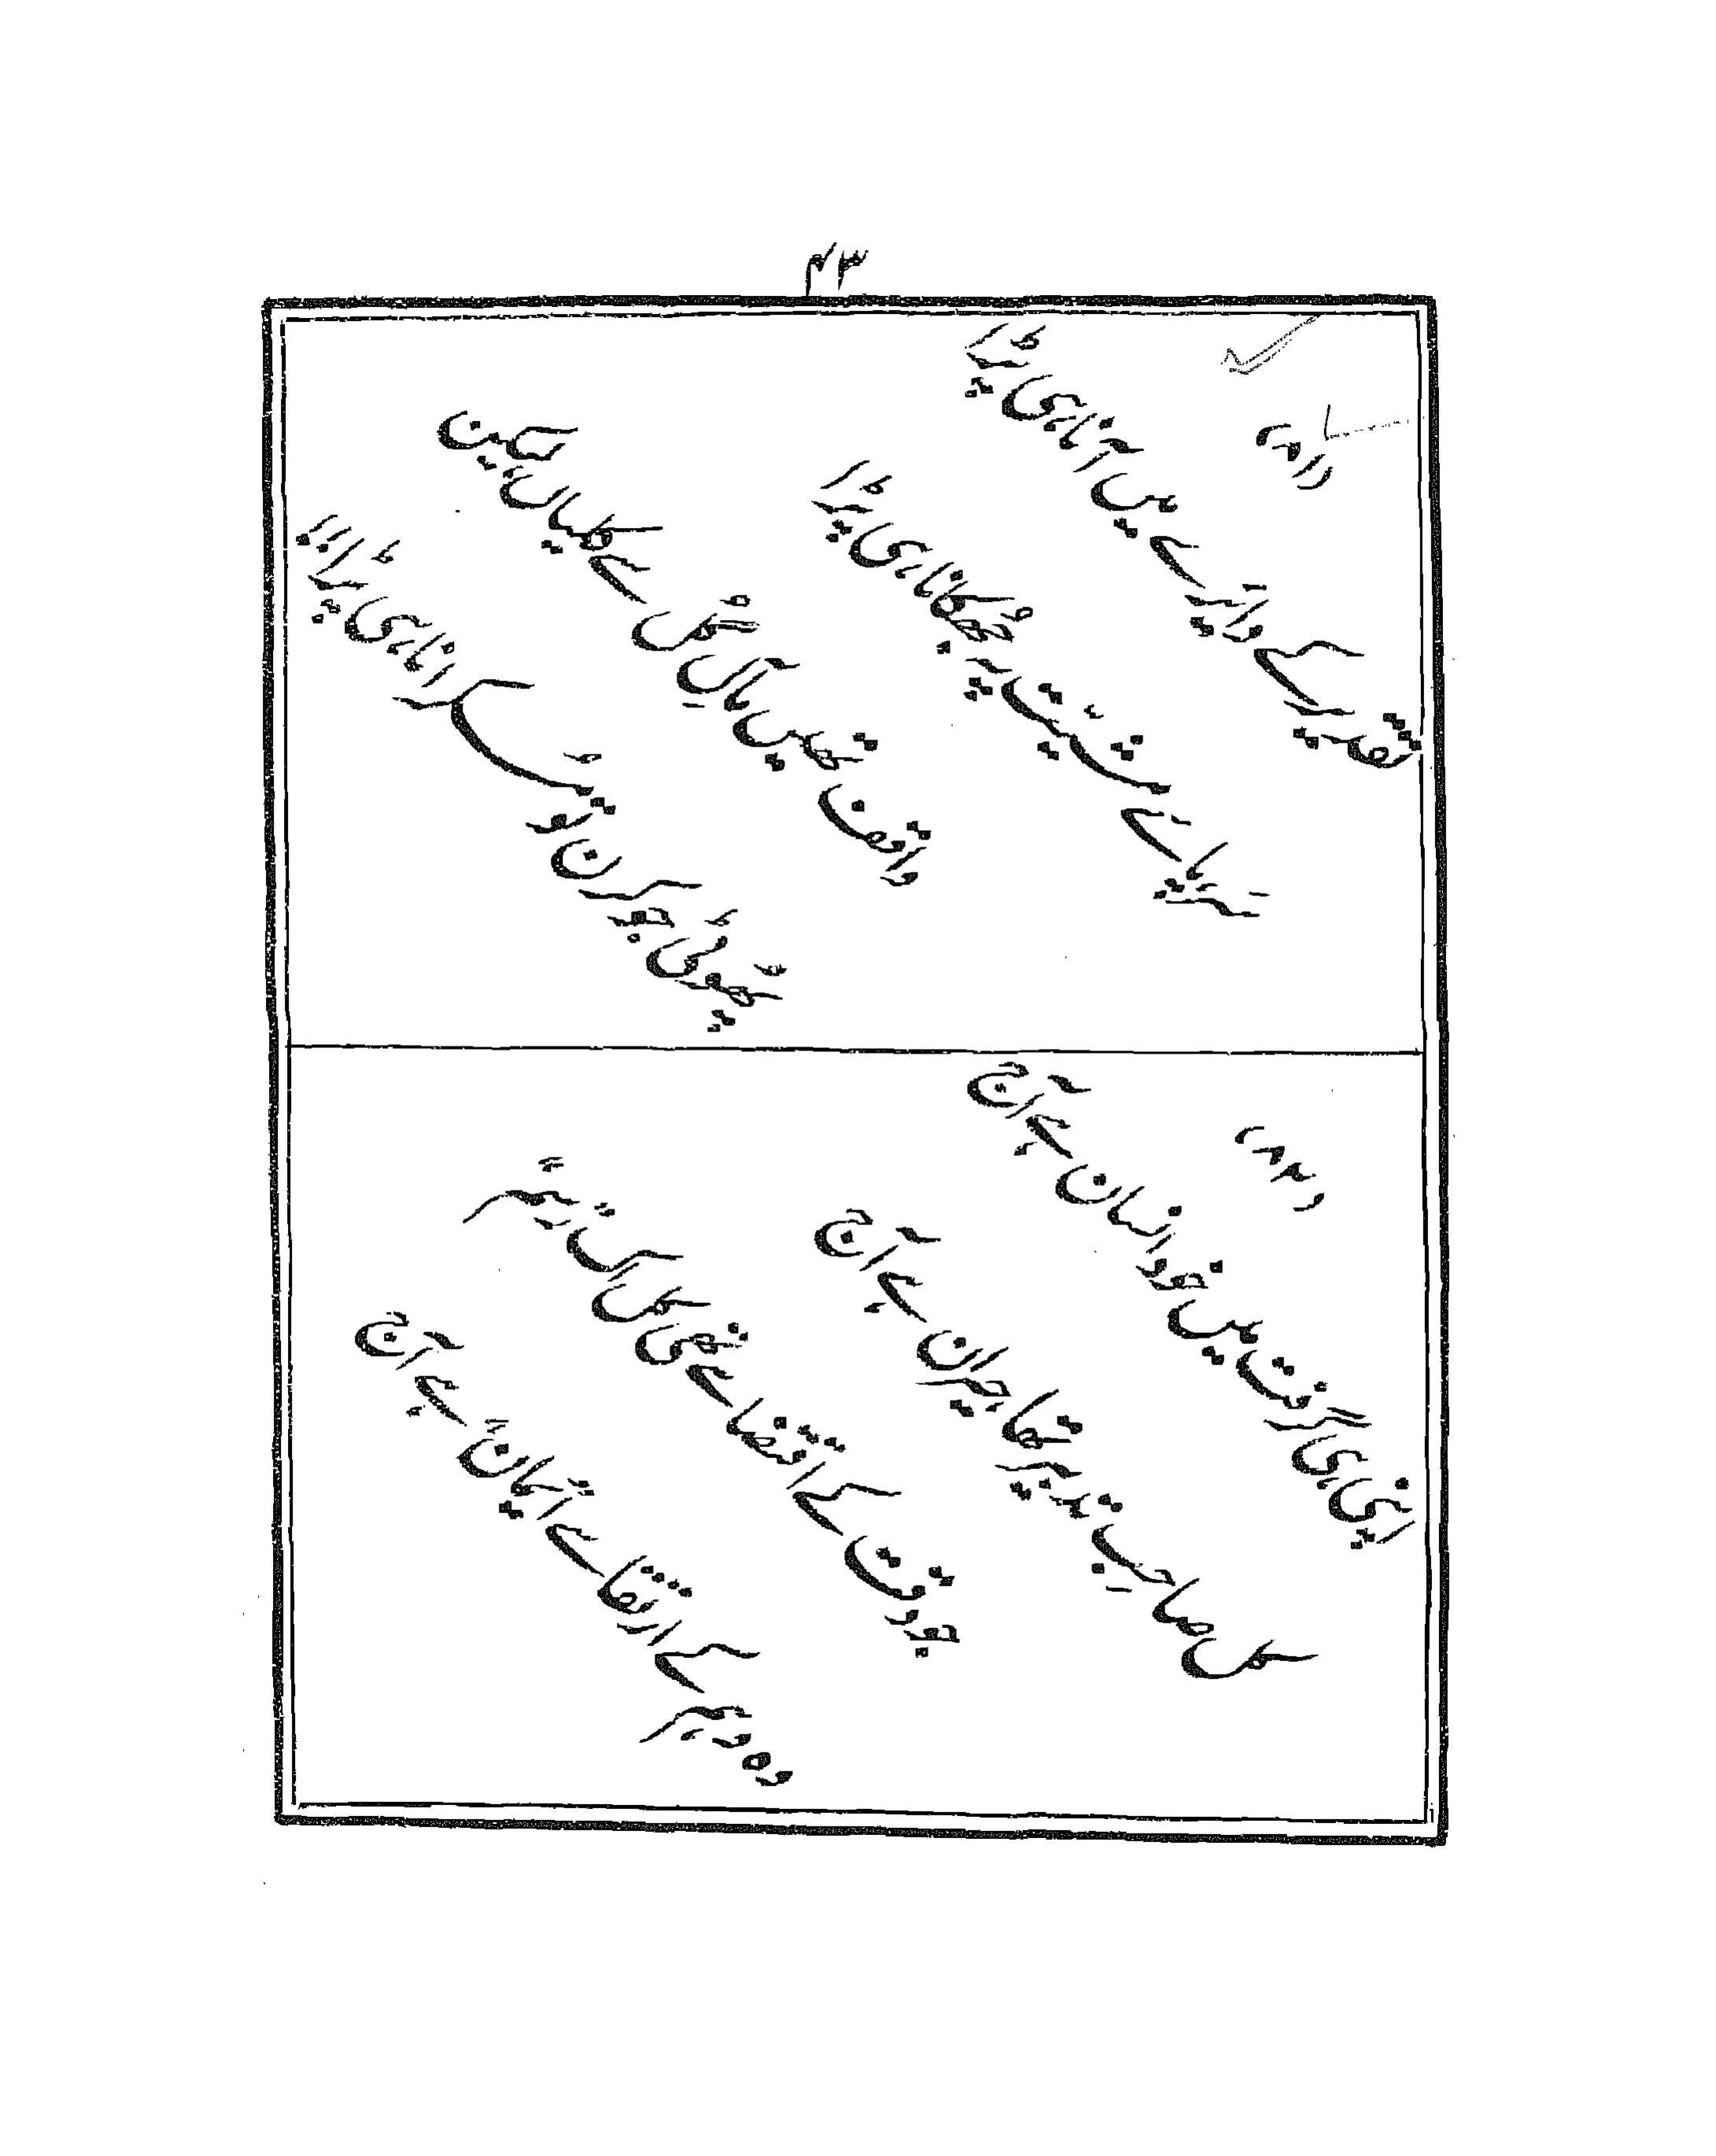 ۴۳
(۸۱)
تقدیر کے دائرے میں آنا ہی پڑا
سر پائے مشیّت پہ جُھکانا ہی پڑا
واقف تھیں مآلِ گُل سے کلیاں لیکن
پھوٹی جو کرن تو مسکرانا ہی پڑا!!
(۸۲)
اپنی ہی گرفت میں خود انسان ہے آج
کل صاحبِ تدبیر تھا، حیران ہے آج
جو وقت کے اقتضا سے تھی کل اک رسم
وہ وہم کے ارتقا سے ایمان ہے آج